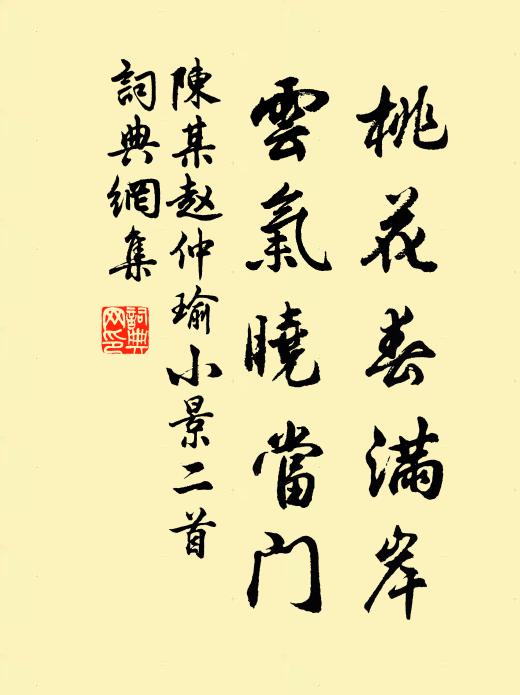 桃花春滿岸
雲氣曉當門
陳某赵仲瑜小景二首
詞典網集
詞典網印